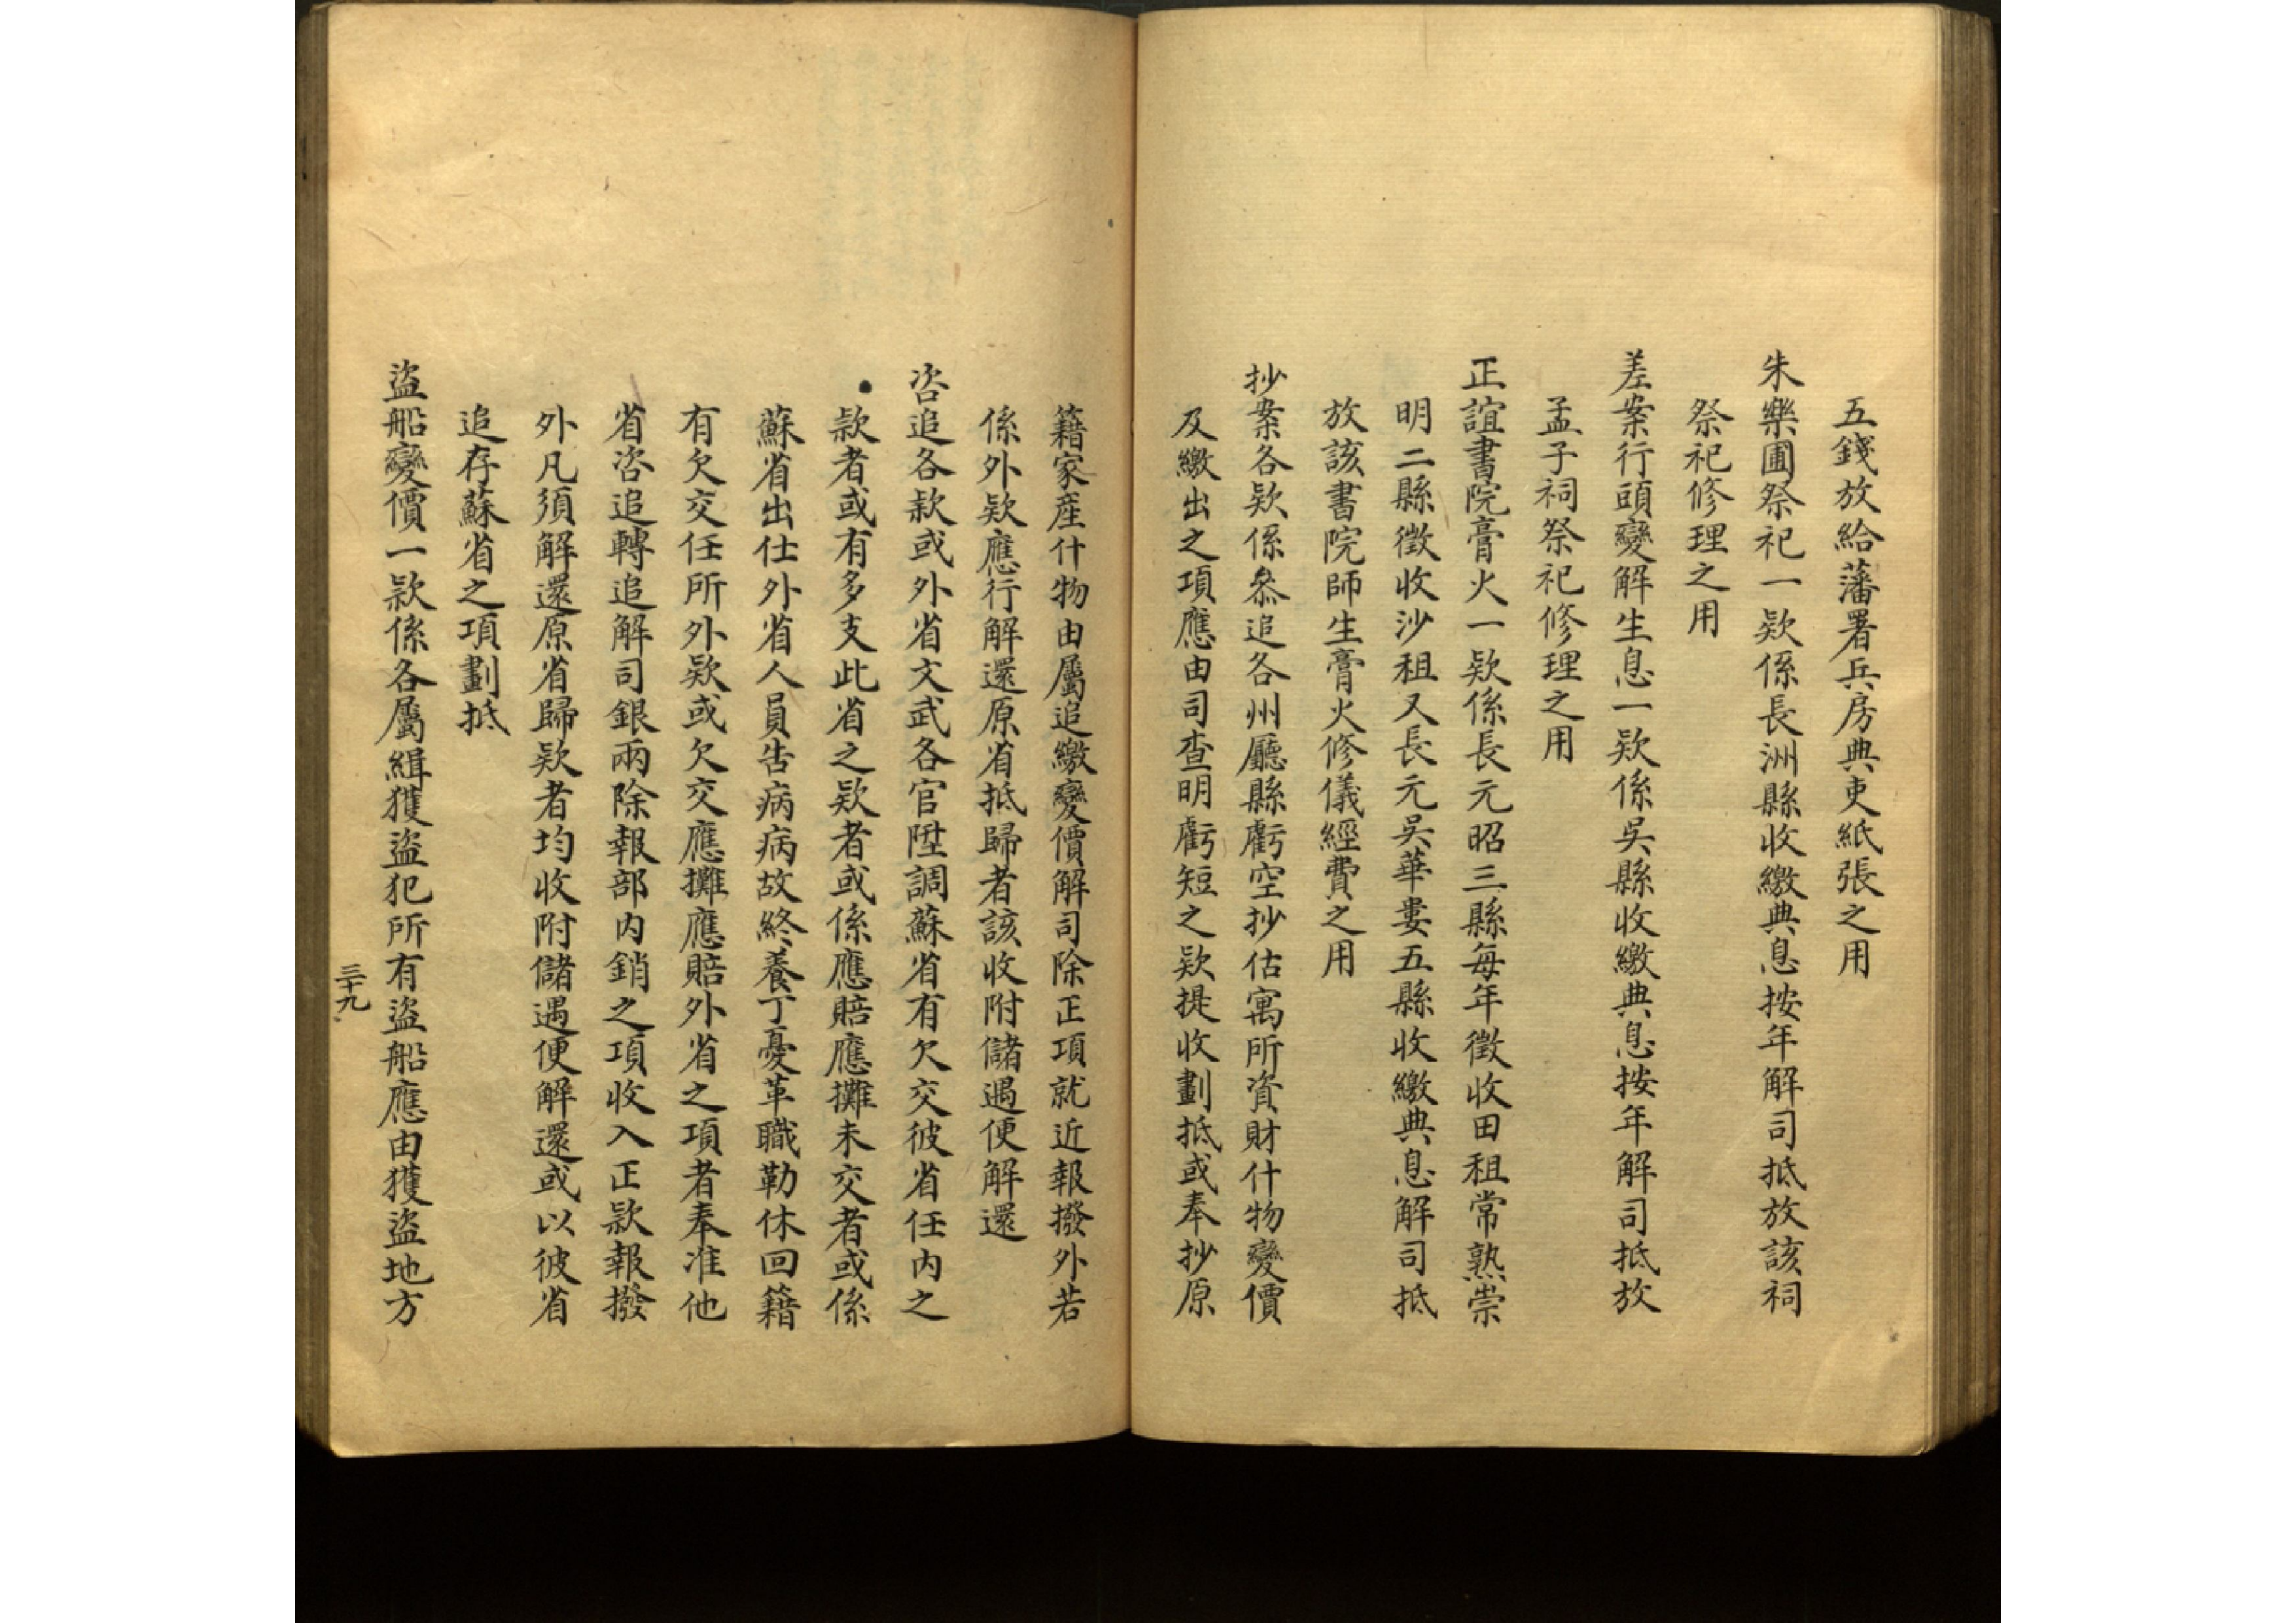 五錢放給藩署兵房典吏紙張之用
朱樂圃祭祀一欵係長洲縣收繳典息按年解司抵放該祠
祭祀修理之用
差案行頭變解生息一欵係吳縣收繳典息按年解司抵放
孟子祠祭祀修理之用
正誼書院膏火一欵係長元昭三縣每年徵收田租常熟崇
明二縣徵收沙租又長元吳華婁五縣收繳典息解司抵
放該書院師生膏火修儀經費之用
抄案各欵係叅追各州廳縣虧空抄估寓所資財什物變價
及繳出之項應由司查明虧短之欵提收劃抵或奉抄原
籍家產什物由屬追繳變價解司除正項就近報撥外若
係外欵應行解還原省抵歸者該收附儲遇便解還
咨追各款或外省文武各官陞調蘇省有欠交彼省任內之
款者或有多支此省之欵者或係應賠應攤未交者或係
蘇省出仕外省人員告病病故終養丁憂革職勒休回籍
有欠交任所外欵或欠交應攤應賠外省之項者奉准他
省咨追轉追解司銀兩除報部內銷之項收入正款報撥
外凡須解還原省歸欵者均收附儲遇便解還或以彼省
追存蘇省之項劃抵
盜船變價一款係各屬緝獲盜犯所有盜船應由獲盜地方
三十九